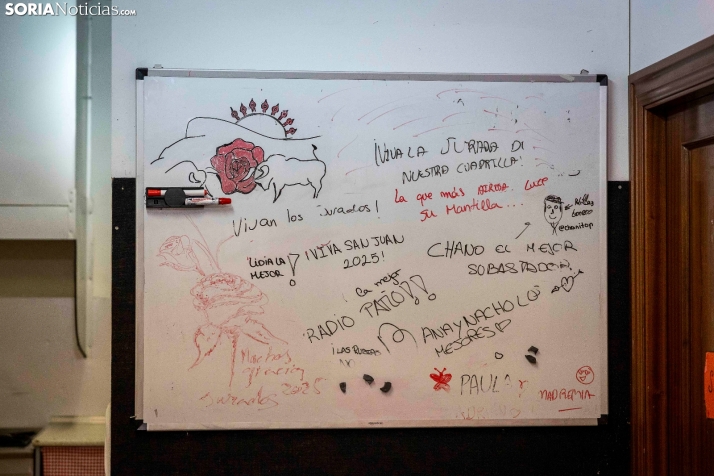 SORIANoticias.com
¡VIVA LA JURADA DI
NUESTRA CUADRILLA!
La que más ... Luce
Su Mantilla...
Vivan los jurados!
@chanitop
¡VIVA SAN JUAN
2025!
¡LIDIA LA
MEJOR!
CHANO EL MEJOR
¡La mejor
RADIO PATIO!!
ANA Y NACHO LOS
MEJORES
Muchas
gracias
Jurados 2025
PAULA
MADREMIA